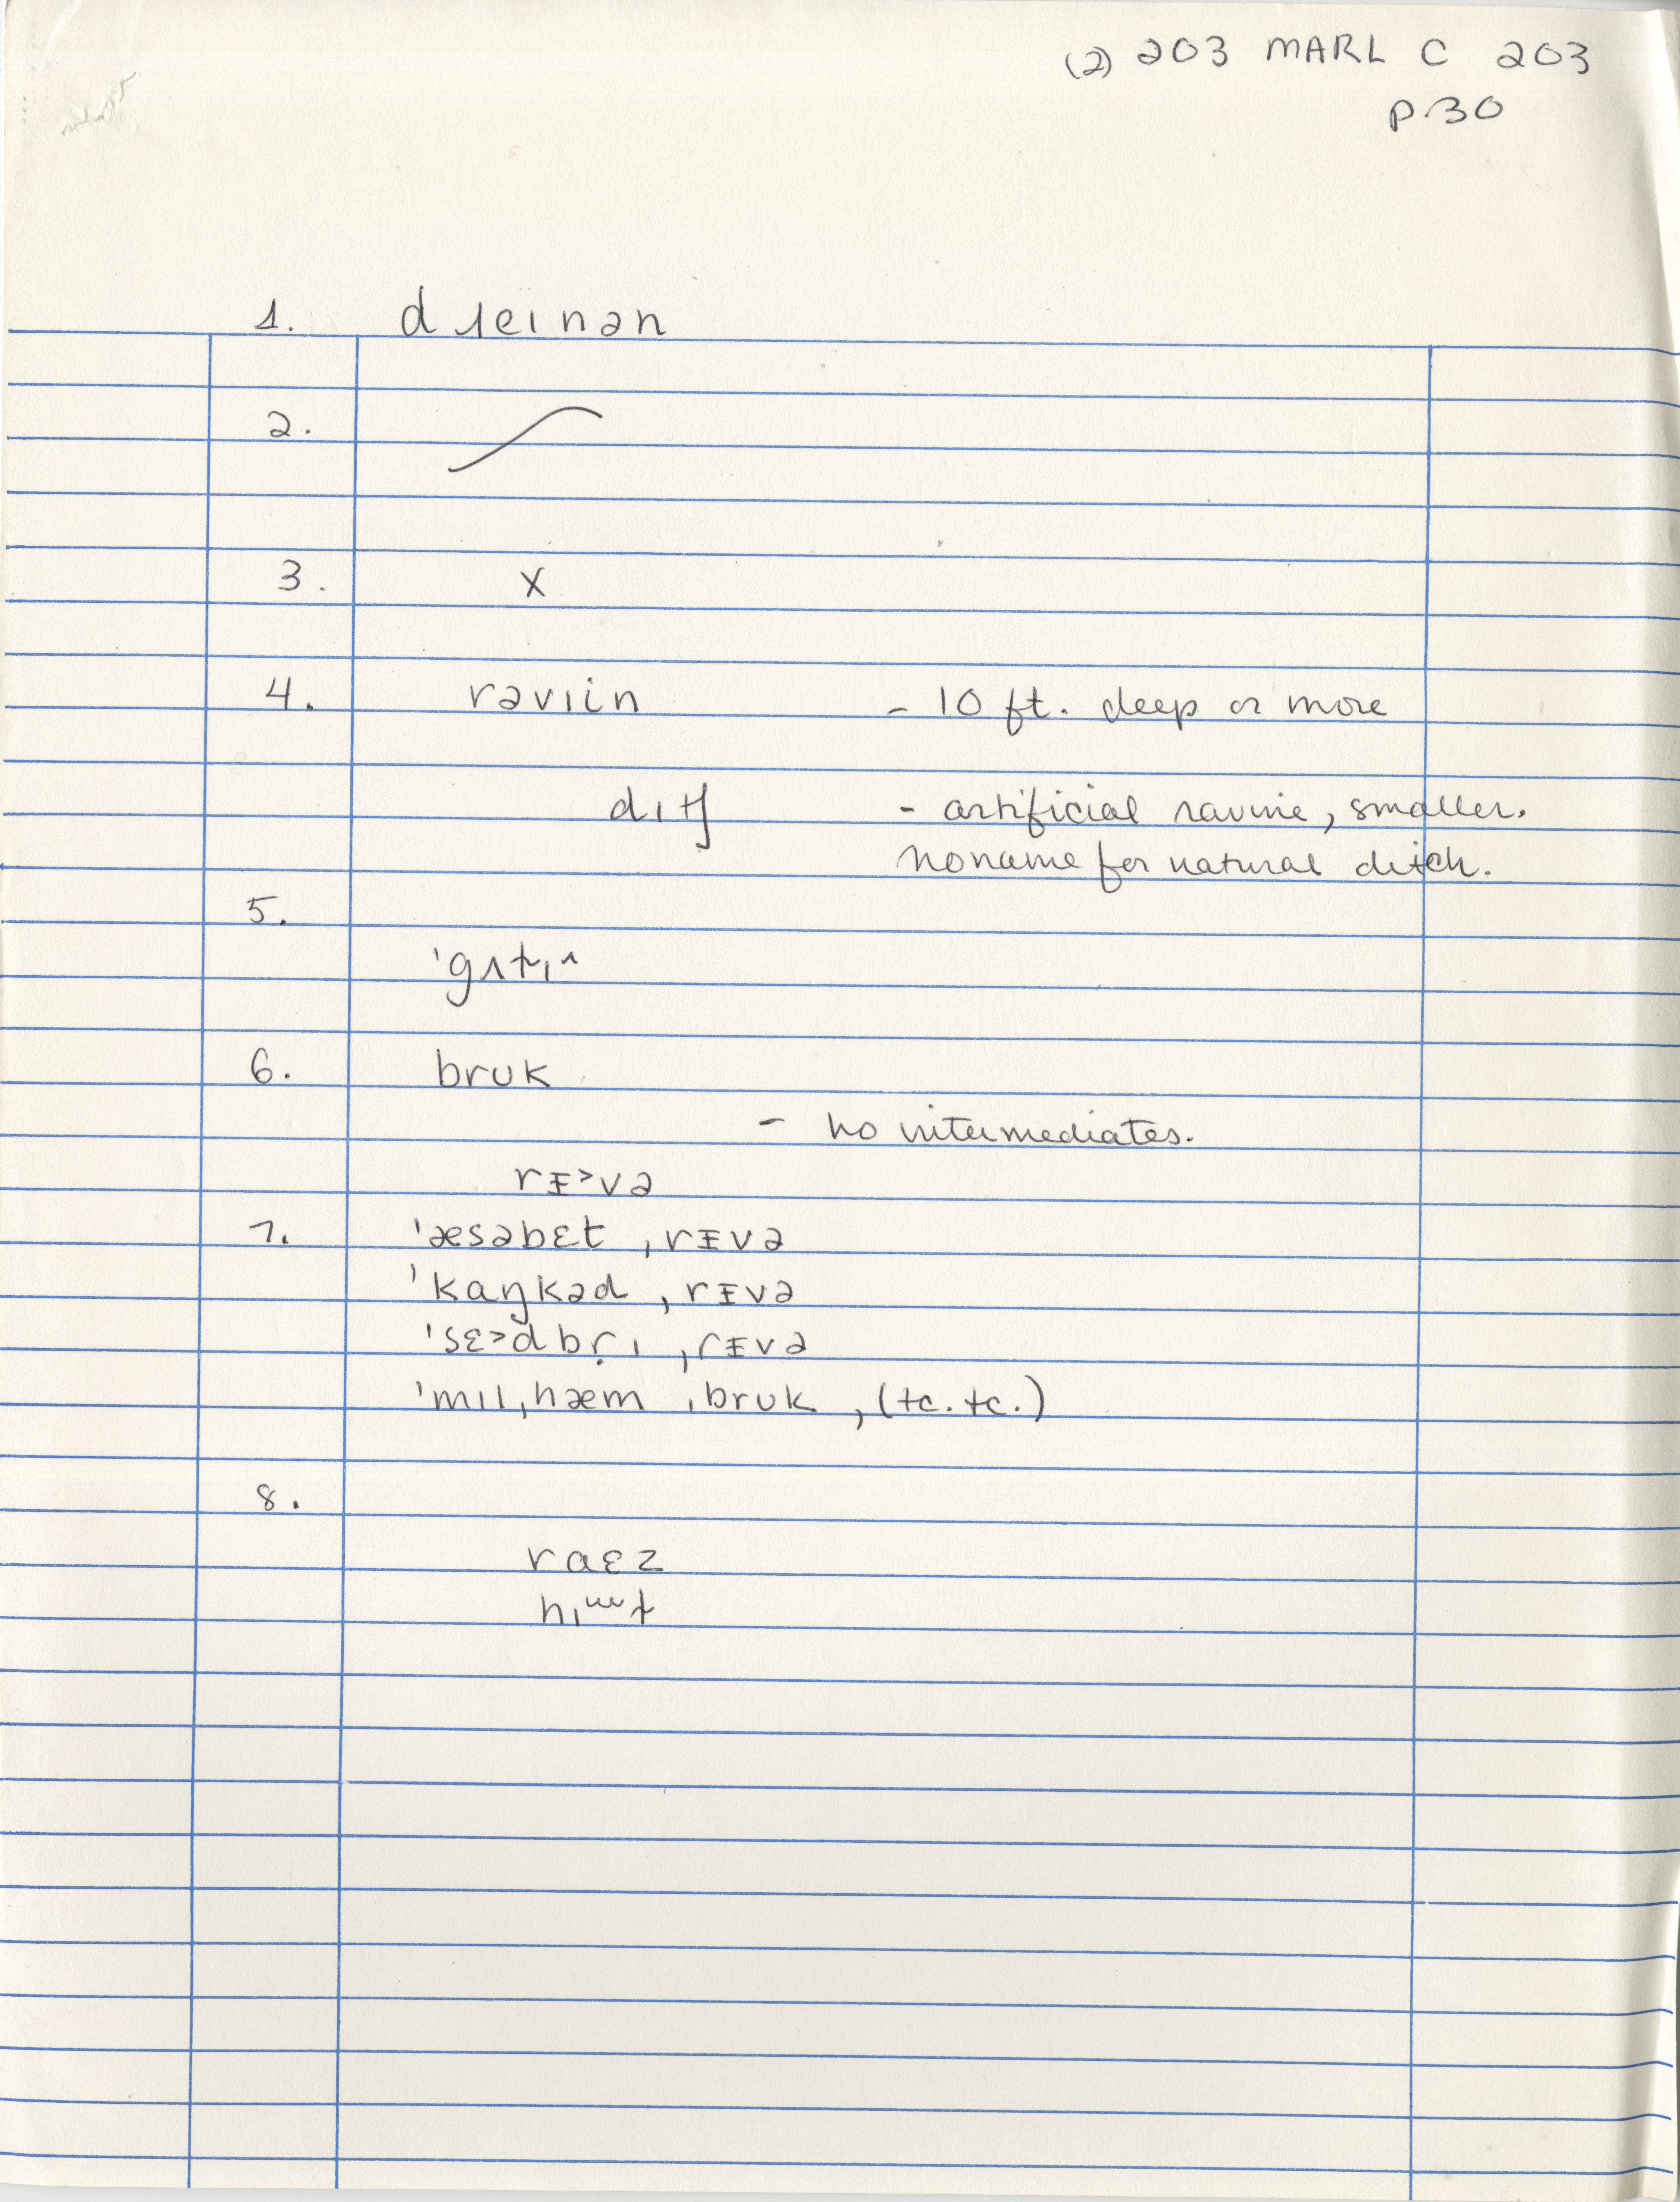 (2) 203 MARL C 203
p. 30
1. dɹeinən
2.
3. X
4. rəvɪin - 10 ft. deep or more
dɪtʃ - artificial ravine, smaller.
no name for natural ditch.
5.
6. brʊk
- no intermediates.
rɪ˃və
7. ˈæsəbɛt ˌrɪvə
ˈkaŋkəd ˌrɪvə
ˈsɛ˃dbr̩ɪ ˌrɪvə
ˈmɪlˌhæm ˌbrʊk, (tc. tc.)
8.
raɛz